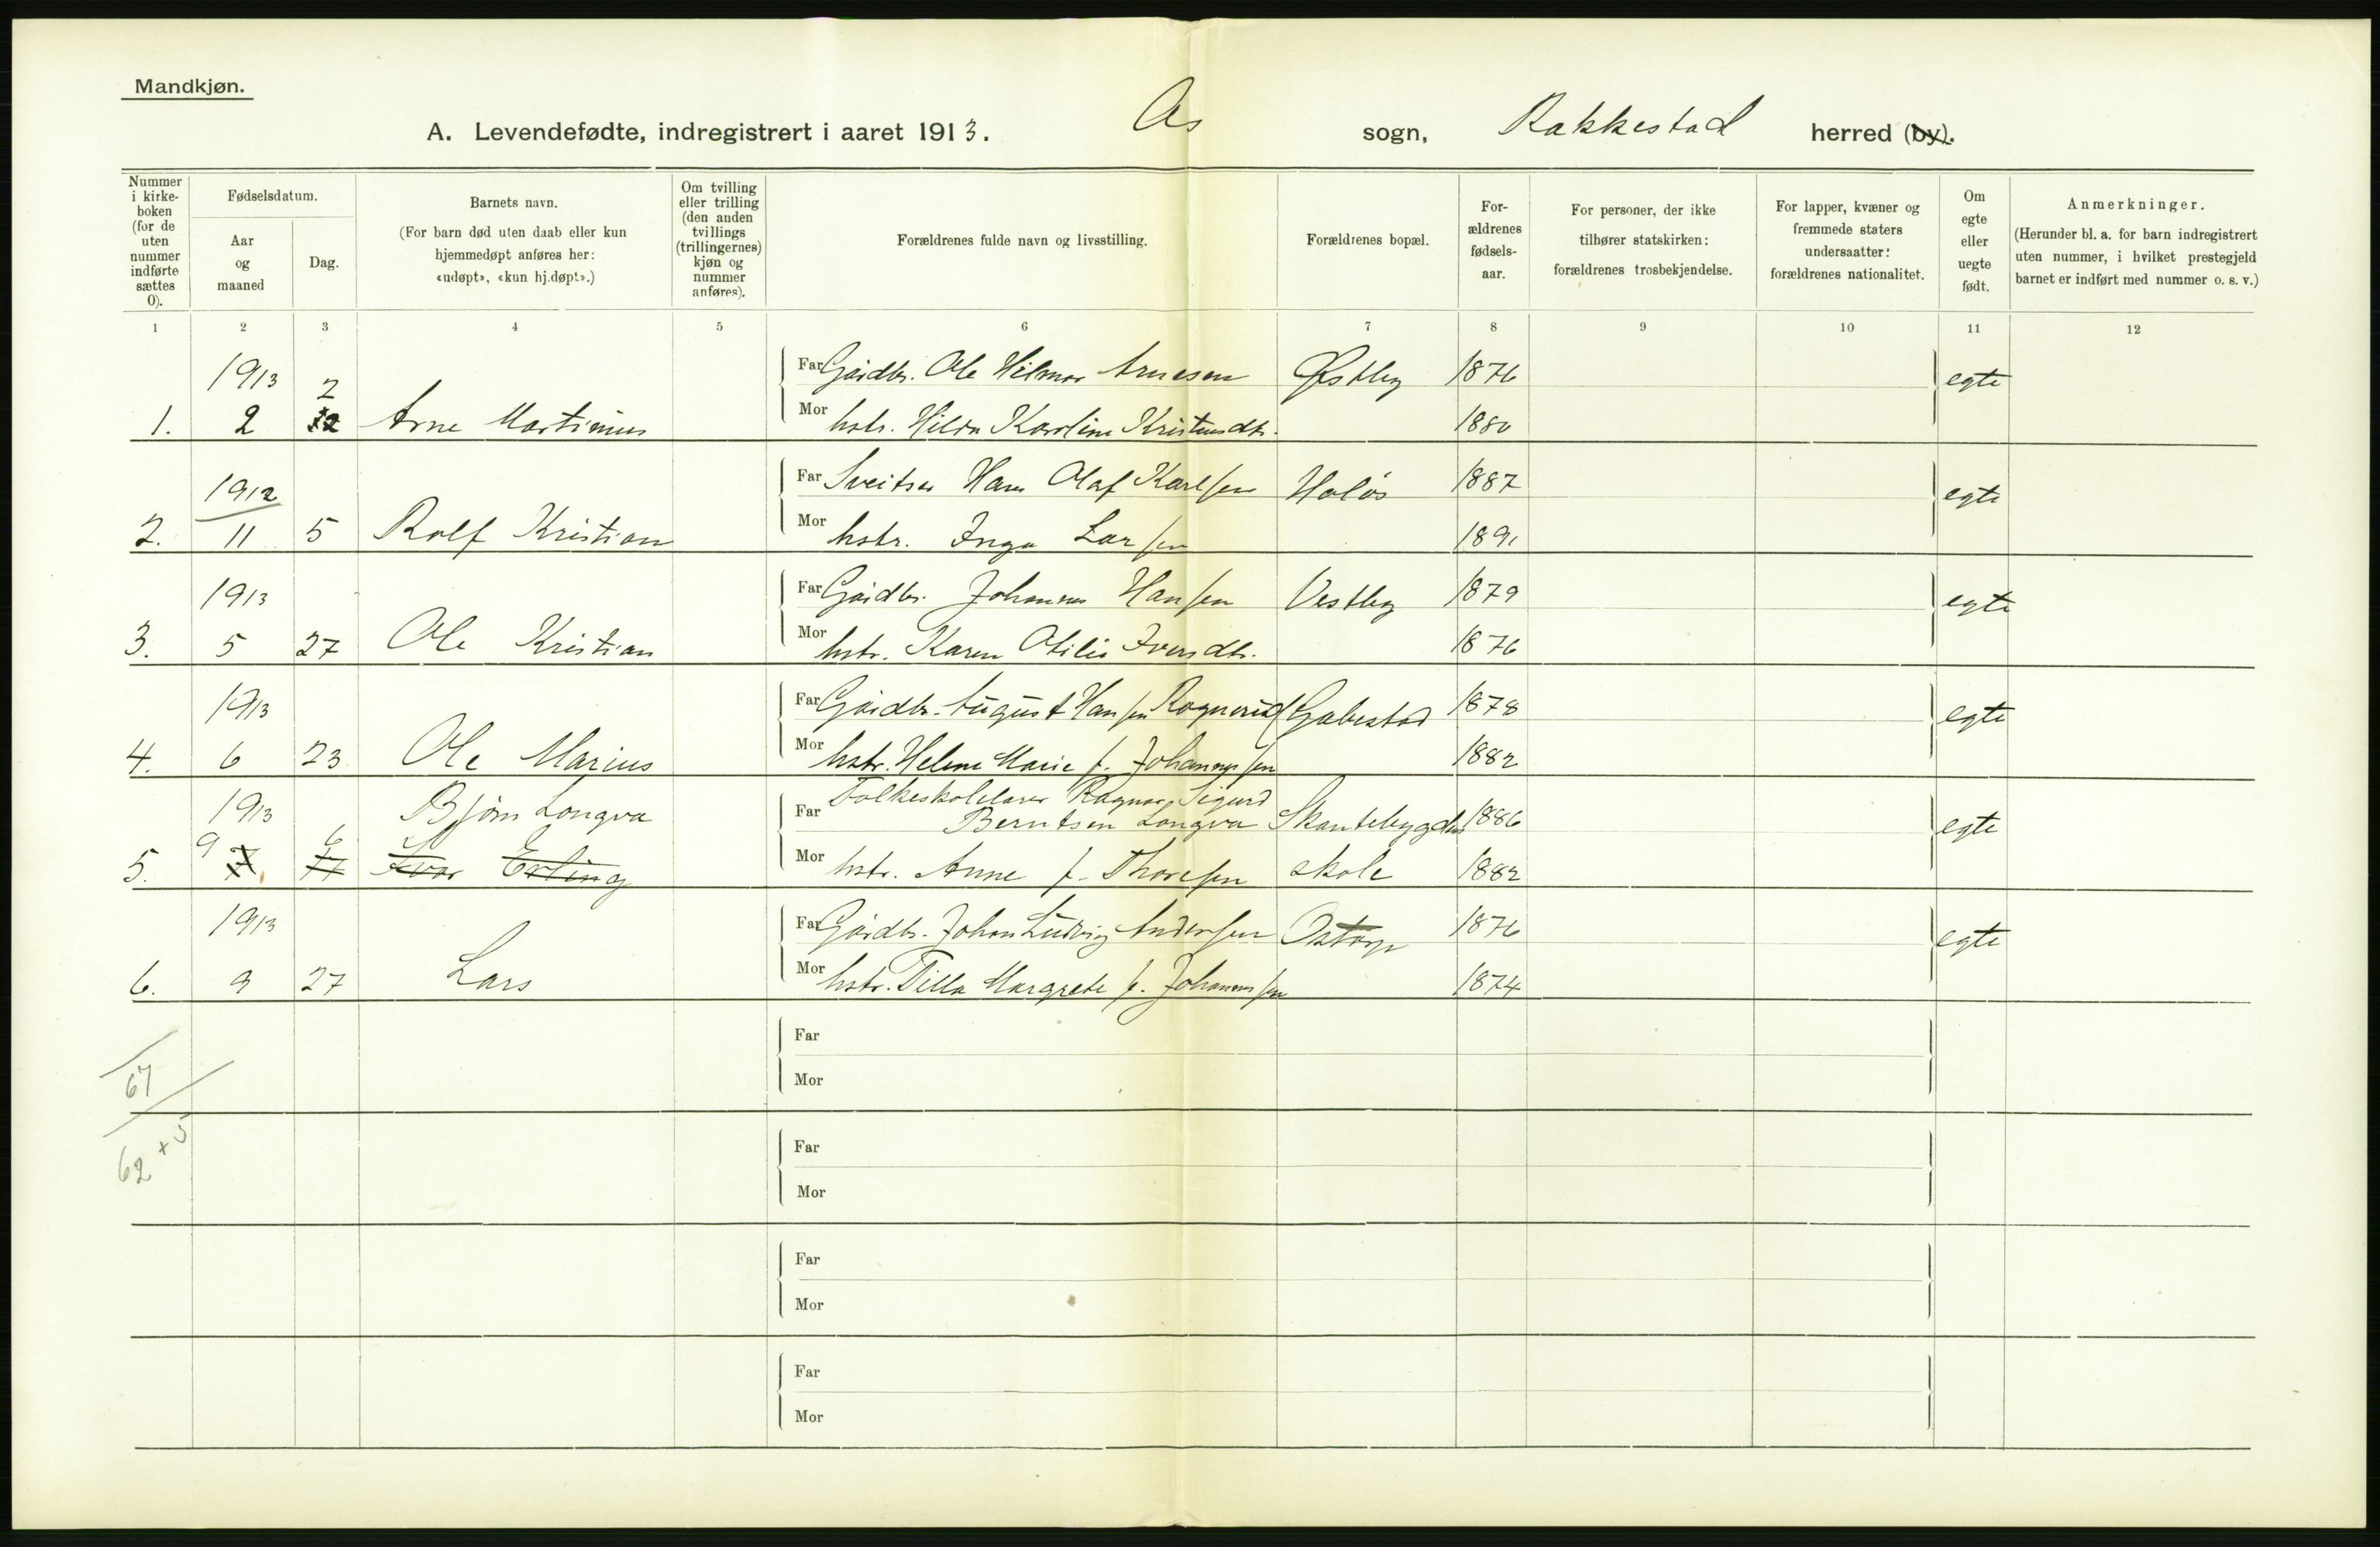 Mandkjøn.
A. Levendefødte, indregistrert i aaret 1913. Os sogn, Rakkestad herred (by).
Nummer i kirke-boken (for de uten nummer indførte sættes 0).
Fødselsdatum.
Aar og maaned
Dag.
Barnets navn.
(For barn død uten daab eller kun hjemmedøpt anføres her: «udøpt», «kun hj.døpt».)
Om tvilling eller trilling (den anden tvillings (trillingernes) kjøn og nummer anføres).
Forældrenes fulde navn og livsstilling.
Forældrenes bopæl.
For-ældrenes fødsels-aar.
For personer, der ikke tilhører statskirken: forældrenes trosbekjendelse.
For lapper, kvæner og fremmede staters undersaatter: forældrenes nationalitet.
Om egte eller uegte født.
Anmerkninger.
(Herunder bl. a. for barn indregistrert uten nummer, i hvilket prestegjeld barnet er indført med nummer o. s. v.)
1 2 3 4 5 6 7 8 9 10 11 12
1913 2 Far Gårdbr. Ole Hilmar Arnesen Østby 1876 egte
1. 2 Arne Martinius Mor hstr. Hilda Karoline Kristensdtr. 1880
1912 Far Sveitser Hans Olaf Karlsen Holøs 1887 egte
2. 11 5 Rolf Kristian Mor hstr. Inga Larsen 1891
1913 Far Gårdbr. Johannes Hansen Vestby 1879 egte
3. 5 27 Ole Kristian Mor hstr. Karen Otilie Iversdtr. 1876
1913 Far Gårdbr. August Hansen Rognerud Gabestad 1878 egte
4. 6 23 Ole Marius Mor hstr. Helene Marie f. Johannessen 1882
1913 Bjørn Longva Far Folkeskolelærer Ragnar Sigurd
Berntsen Longva Skantebygdens 1886 egte
5. 9 7 6 Ivar Erling Mor hstr. Anne f. Thoresen skole 1882
1913 Far Gårdbr. Johan Ludvig Andersen Ostorp 1876 egte
6. 9 27 Lars Mor hstr. Tilla Margrete f. Johannessen 1874
Far
67
Mor
Far
62 + 5
Mor
Far
Mor
Far
Mor